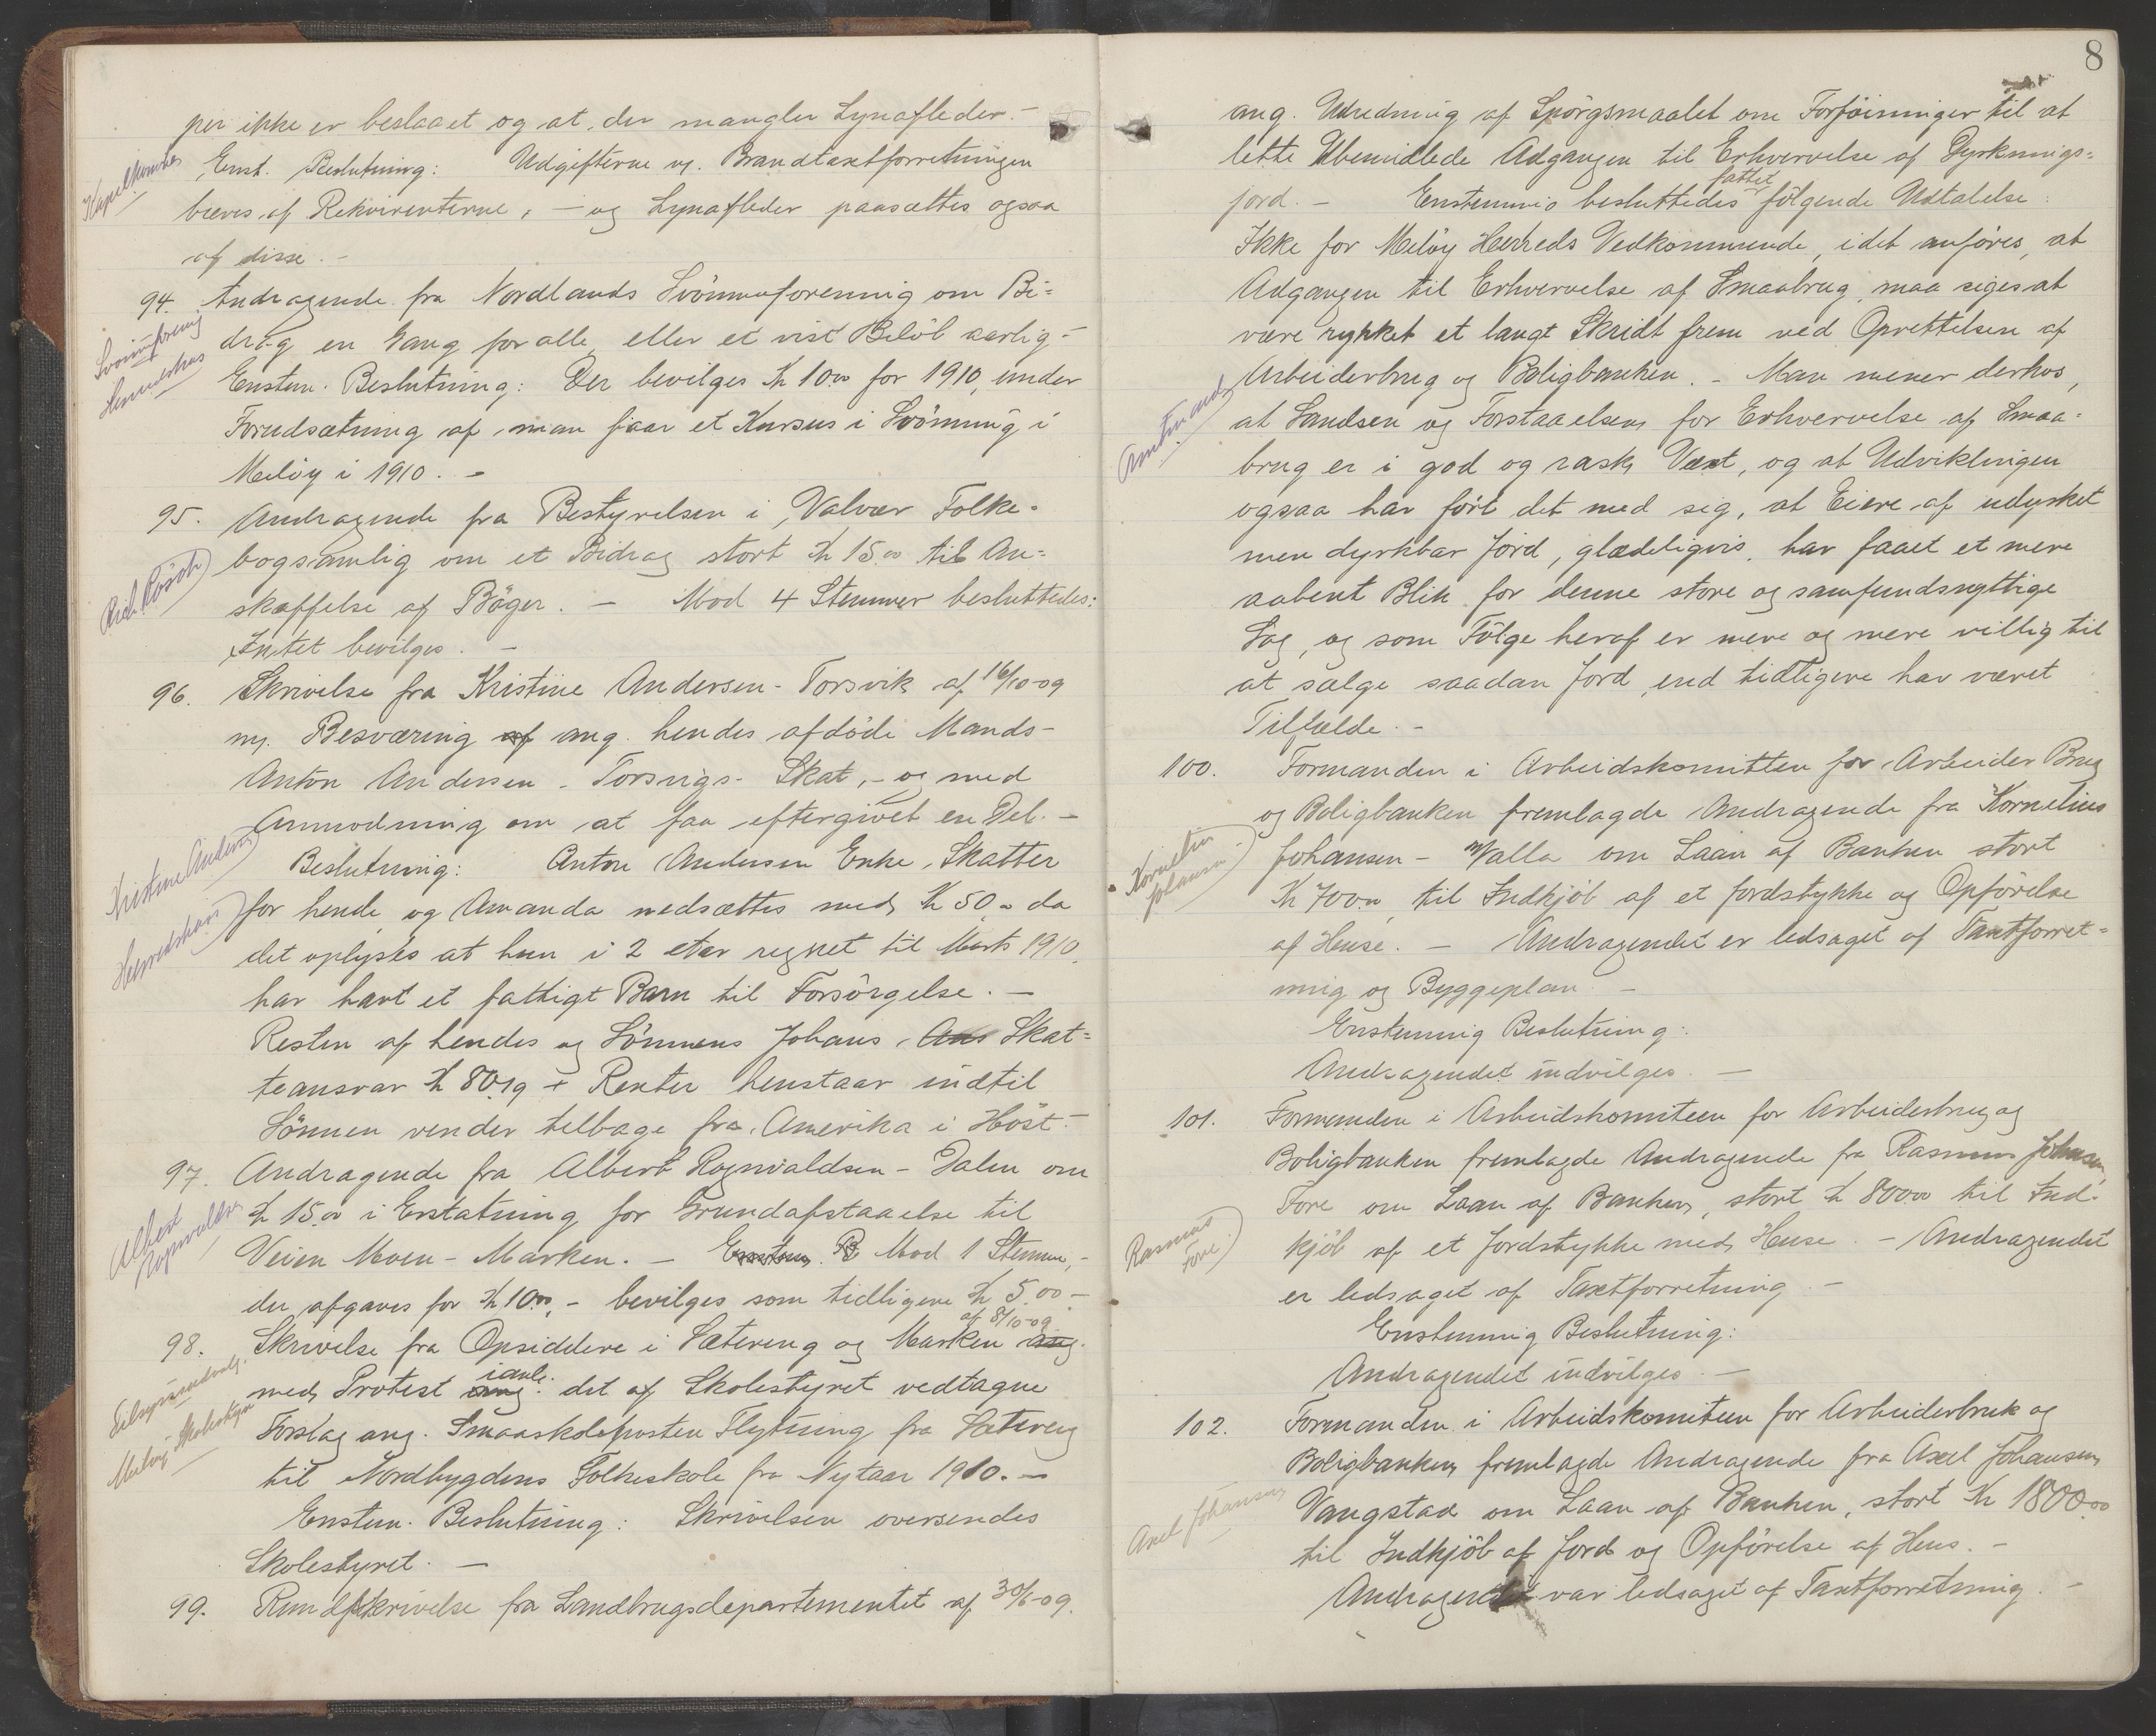 per ikke er beslaaet og at der mangler Lynafleder. -
Enst. Beslutning: Udgifterne v. Brandtaxtforretningen
bæres af Rekvirenterne, - og Lynafleder paasættes ogsaa
af disse. -
94. Andragende fra Nordlands Svömmeforening om Bi=
drag en Gang for alle, eller et vist Belöb aarlig -
Enstem. Beslutning: Der bevilges Kr 10.00 for 1910, under
Forudsætning af man faar et Kursus i Svömning i
Melöy i 1910. -
95. Andragende fra Bestyrelsen i Valvær Folke-
bogsamlig om et Bidrag stort Kr 15.00 til An=
skaffelse af Böger. - Mod 4 Stemmer besluttedes:
Intet bevilges. -
96. Skrivelse fra Kristine Andersen - Torsvik af 16/10-09
m. Besværing af ang. hendes afdöde Mands -
Anton Andersen - Torsvigs - Skat, - og med
Anmodning om at faa eftergivet en Del. -
Kristine Andersen
Beslutning: Anton Andersen Enke, Skatter
for hende og Amanda nedsættes med Kr 50.00 da
det oplystes at hun i 2 etar regnet til Marts 1910
har havt et fattigt Barn til Forsörgelse. -
Resten af hendes og Sönnens Johans, Skat=
teansvar Kr 80.19 + Renter henstaar indtil
Sönnen vender tilbage fra Amerika i Höst. -
97. Andragende fra Albert Rognvaldsen - Dalen om
Kr 15.00 i Erstatning for Grundafstaaelse til
Albert Rognvaldsen
Veien Moen - Marken. - Enstem. B Mod 1 Stemme, -
der afgaves for Kr 10.00, - bevilges som tidligere Kr 5.00 -
af 8/10-09
98. Skrivelse fra Opsiddere i Sætereng og Marken ang.
ianl.
med Protest ang. det af Skolestyret vedtagne
Meløy Skolestyre
Forslag ang. Smaaskoleposten Flytning fra Sætereng
til Nordbygdens Folkeskole fra Nytaar 1910. -
Enstem. Beslutning: Skrivelsen oversendes
Skolestyret. -
99. Rundskrivelse fra Landbrugsdepartementet af 30/6-09.
8
ang. Udredning af Spörgsmaalet om Forföininger til at
lette Ubemidlede Adgangen til Erhvervelse af Dyrknings=
fattet
jord. - Enstemmig besluttedes fölgende Udtalelse:
Ikke for Melöy Herreds Vedkommende, idet anföres, at
Adgangen til Erhvervelse af Smaabrug, maa siges at
være rykket et langt Skridt frem ved Oprettelsen af
Arbeiderbrug og Boligbanken. - Man mener derhos,
at Sandsen og Forstaaelsen for Erhvervelse af Smaa=
brug er i god og rask Vext, og at Udviklingen
ogsaa har fört det med sig, at Eiere af udyrket
men dyrkbar Jord, glædeligvis, har faaet et mere
aabent Blik for denne store og samfundsnyttige
Sag, og som Fölge heraf er mere og mere villig til
at sælge saadan Jord, end tidligere har været
Tilfælde. -
100. Formanden i Arbeidskomitten for Arbeider Brug
og Boligbanken fremlagde Andragende fra Kornelius
Johansen - Valla om Laan af Banken stort
Kornelius Johansen
Kr 700.00 til Indkjöb af et Jordstykke og Opförelse
af Huse. - Andragendet er ledsaget af Taxtforret=
ning og Byggeplan. -
Enstemmig Beslutning:
Andragendet indvilges. -
101. Formanden i Arbeidskomiteen for Arbeiderbrug og
Boligbanken fremlagde Andragende fra Rasmus Johansen,
Fore om Laan af Banken, stort Kr 800.00 til Ind-
Rasmus Fore.
kjöb af et Jordstykke med Huse. - Andragendet
er ledsaget af Taxtforretning. -
Enstemmig Beslutning:
Andragendet indvilges. -
102. Formanden i Arbeidskomiteen for Arbeiderbruk og
Boligbanken fremlagde Andragende fra Axel Johansen,
Axel Johansen
Vangstad om Laan af Banken, stort Kr 1800.00
til Indkjöb af Jord og Opförelse af Hus. -
Andragendet var ledsaget af Taxtforretning. -